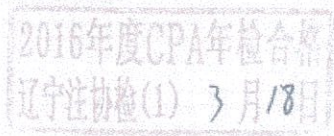 2016年度CPA年检合格
辽宁注协检(1) 3月18日